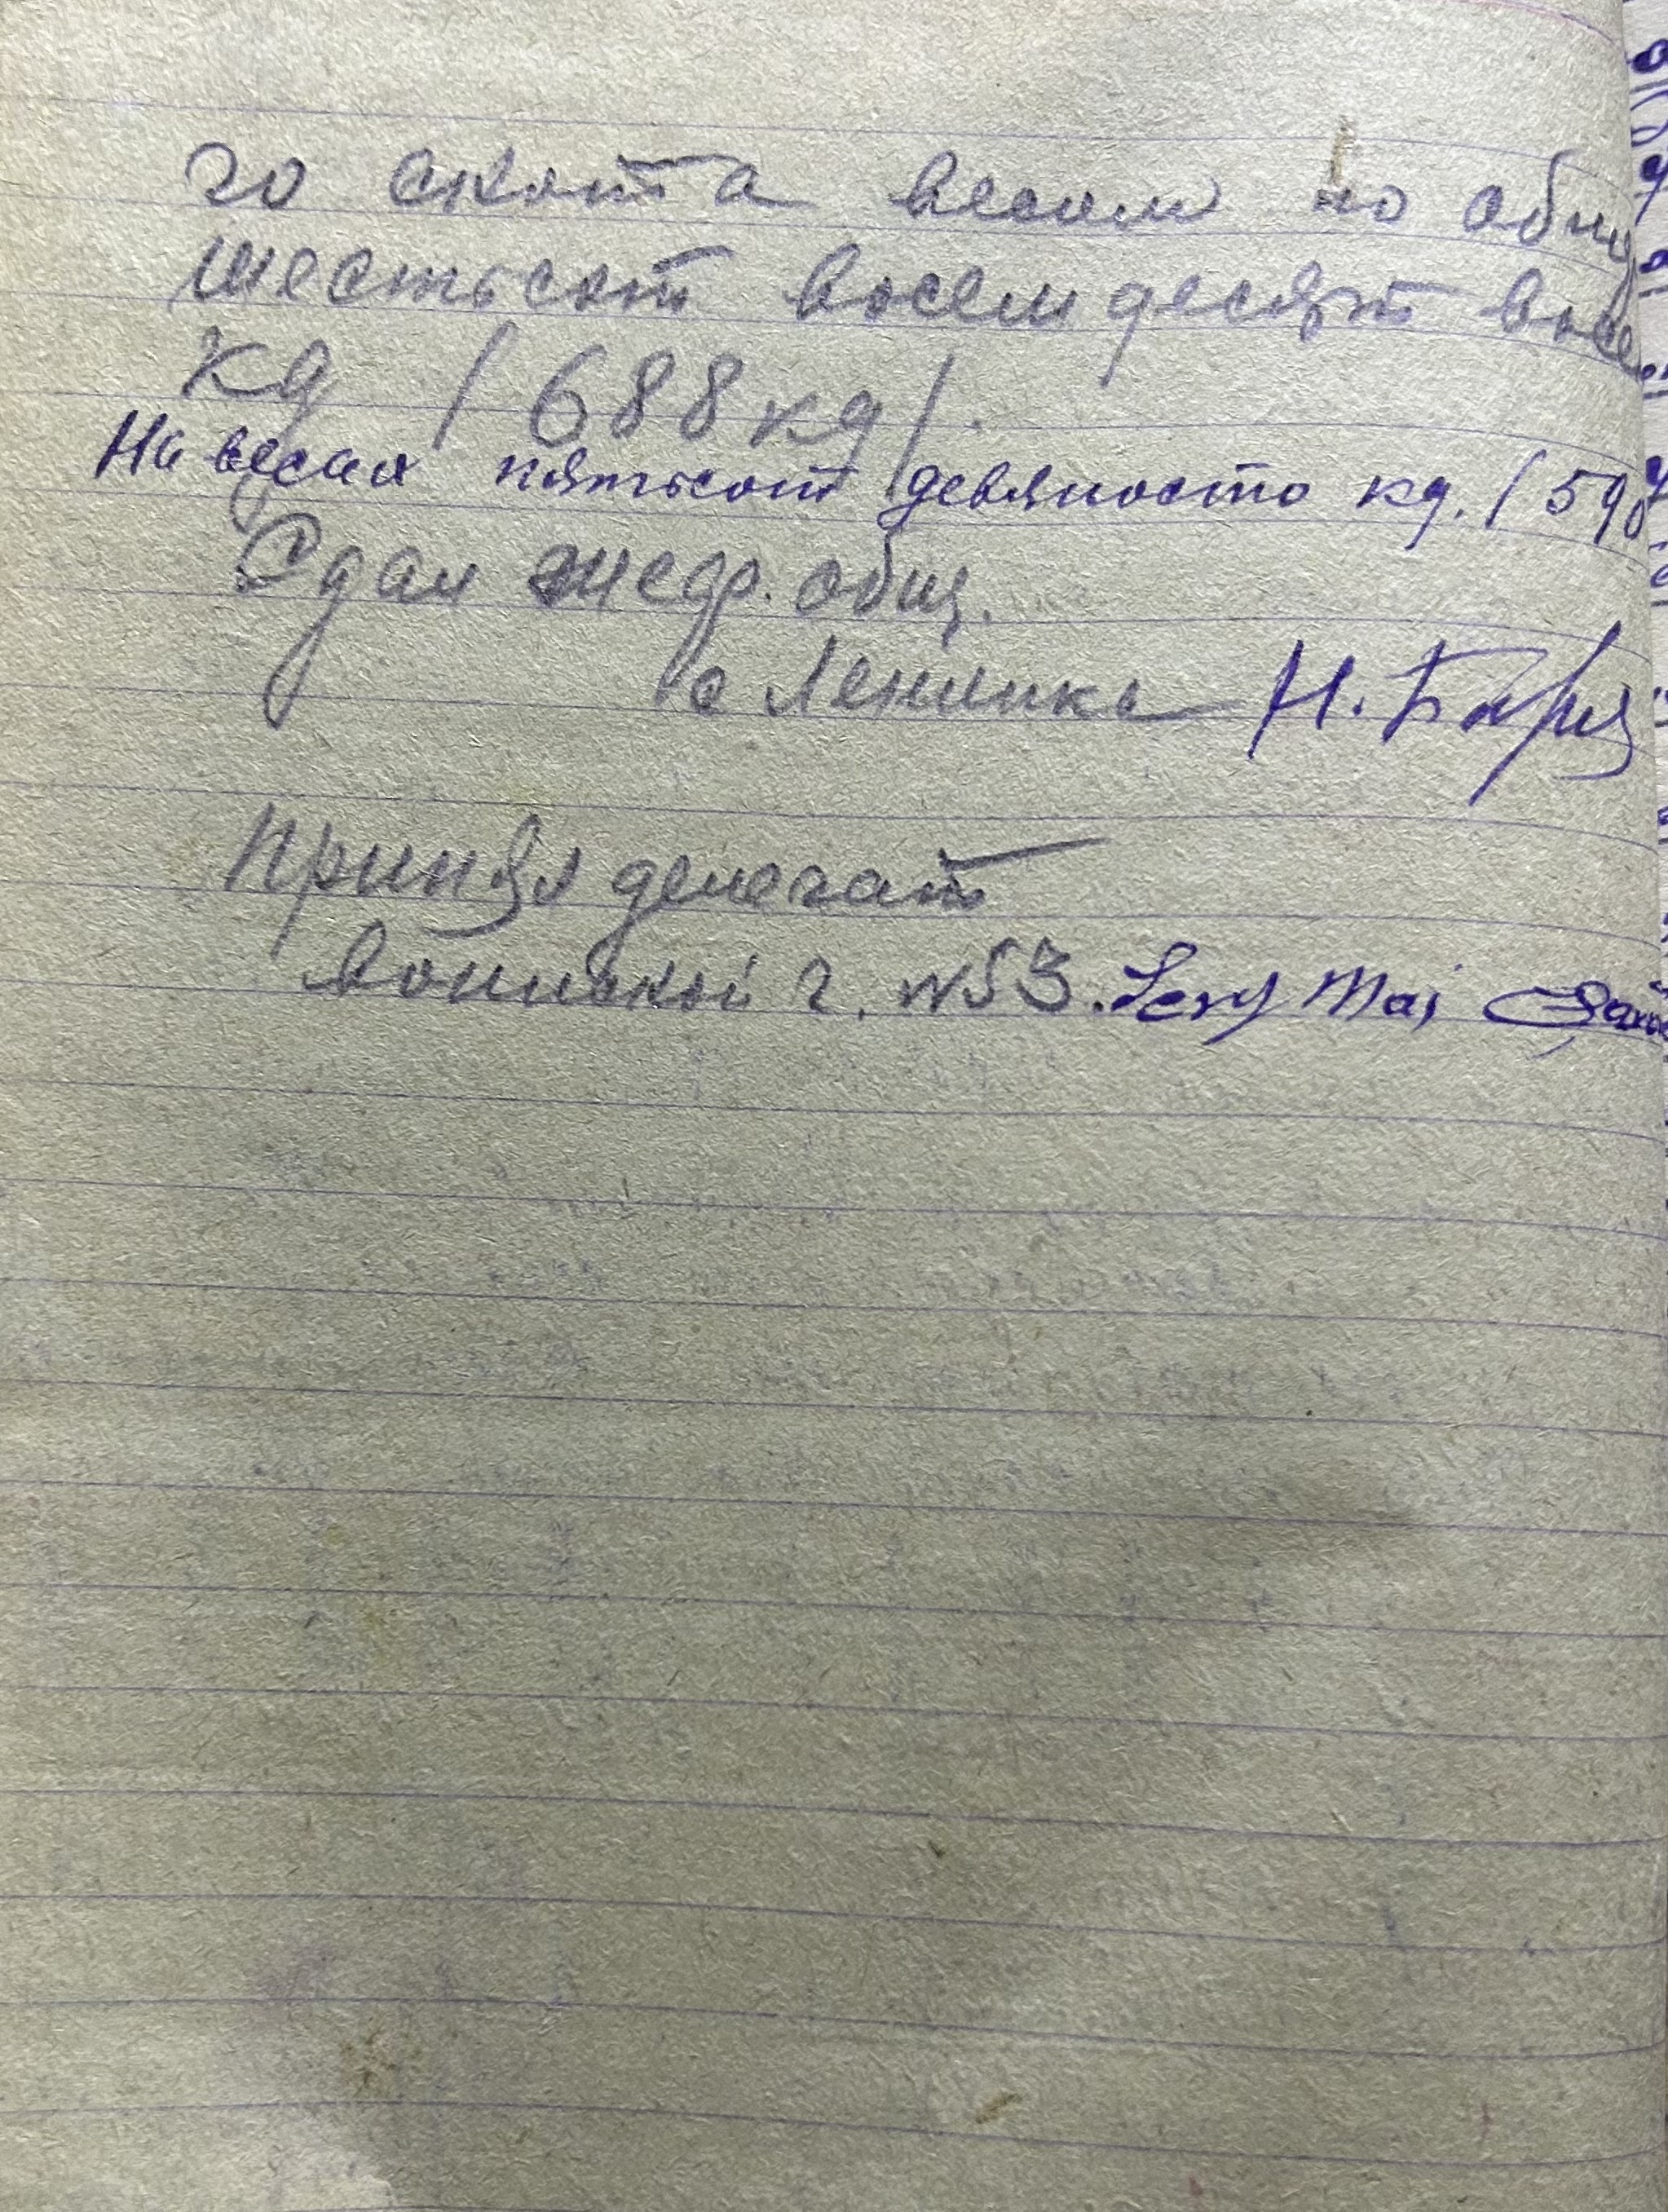 го скота весом по общ
шестьсот восемдесят восе
кг /688 кг/.
На весах пятьсот девяносто кг. /590
Сдал шеф. общ.
с Леняика Н. Бирц
Принял делегат
воинской ч. №53. Levy Maj